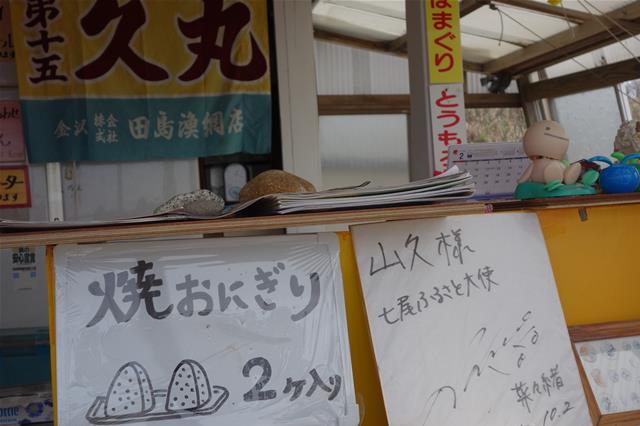 第十五
久丸
金沢 株式会社 田島漁網店
はまぐり
とうもろ
焼おにぎり
2ヶ入り
山久様
七尾ふるさと大使
菜々緒
10.2